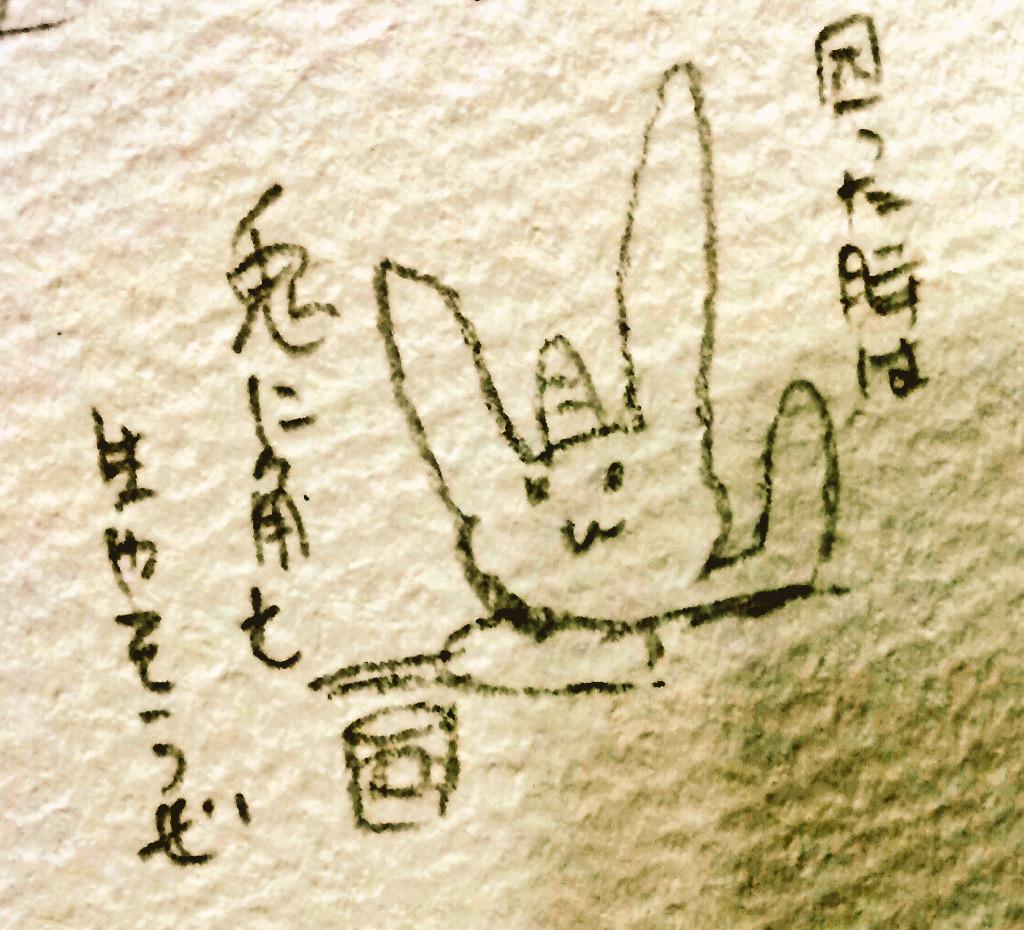 困った時は
兎に角も
生やそーっぜ